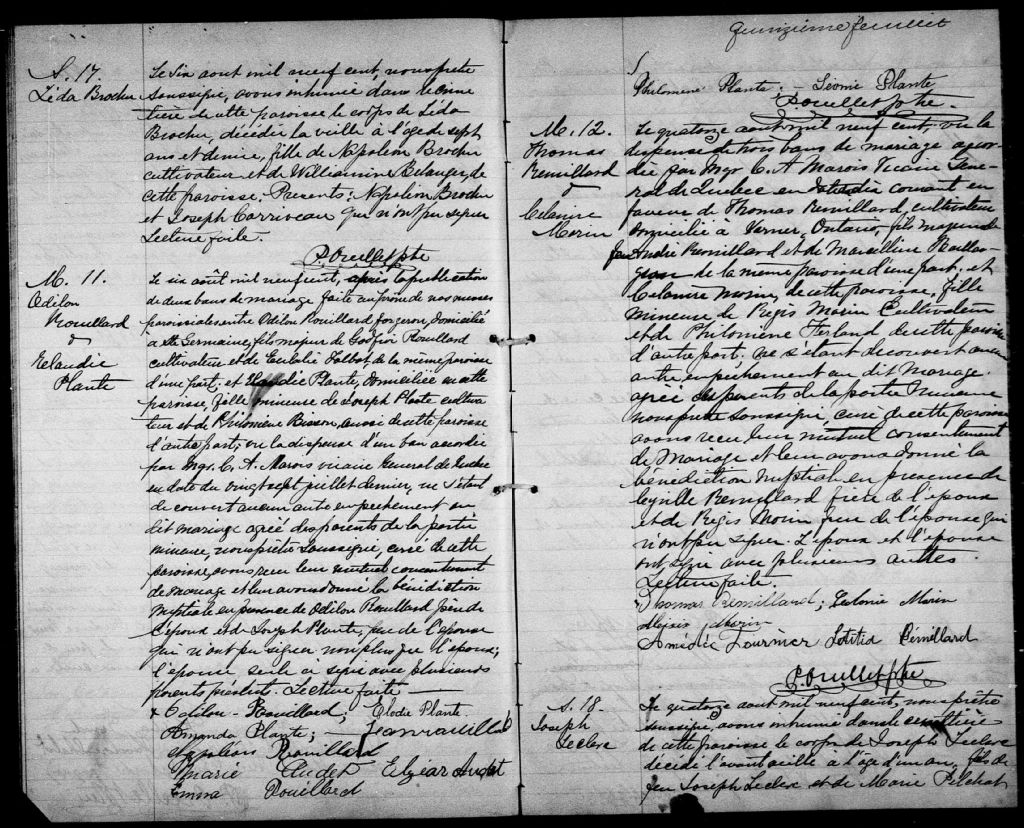 S. 17.
Léda Brochu
Le six aout mil neuf cent, nous prêtre
soussigné, avons inhumé dans le cime
tière de cette paroisse le corps de Léda
Brochu, décédée la veille à l'âge de sept
ans et demie, fille de Napoléon Brochu
cultivateur et de Williamine Bélanger, de
cette paroisse. Présents: Napoléon Brochu
et Joseph Carriveau qui n'ont pu signer
Lecture faite.
P. Ouellet ptre
M. 11.
Odilon
Rouillard
&
Elaudie
Plante
Le six août mil neuf cent, après la publication
de deux bans de mariage faite au prône de nos messes
paroissiales entre Odilon Rouillard forgeron, domicilié
à Ste Germaine, fils majeur de Godfroi Rouillard
cultivateur et de Eulalie Talbot de la même paroisse
d'une part; et Elaudie Plante, domiciliée en cette
paroisse, fille mineure de Joseph Plante cultiva
teur et de Philomène Bisson, aussi de cette paroisse
d'autre part; vu la dispense d'un ban accordée
par Mgr. C. A. Marois vicaire General de Quebec
en date du vingt sept juillet dernier, ne s'étant
découvert aucun autre empêchement au
dit mariage agrée des parents de la partie
mineure, nous prêtre soussigné, curé de cette
paroisse, avons reçu leur mutuel consentement
de mariage et leur avons donné la bénédiction
nuptiale en présence de Odilon Rouillard père de
l'époux et de Joseph Plante, père de l'épouse
qui n'ont pu signer non plus que l'époux;
l'épouse seule a signé avec plusieurs
parents présents. Lecture faite —
x Odilon Rouillard; Elodie Plante
Amanda Plante;
Napoléon Rouillard
Marie Audet Elzéar Audet
Emma Rouillard
Quinzième feuillet
Philomene Plante; — Léonie Plante
P. Ouellet ptre.
M. 12.
Thomas
Remillard
&
Célanire
Morin
Le quatorze aout mil neuf cent, vu la
dispense de trois bans de mariage accor-
dée par Mgr C. A Marois Vicaire Géné-
ral de Quebec en date du courant en
faveur de Thomas Remillard, cultivateur
domicilié à Verner, Ontario, fils majeur de
feu André Remillard et de Marcelline Baillar
geon de la même paroisse d'une part. et
Célanire Morin, de cette paroisse, fille
mineure de Régis Morin Cultivateur
et de Philomène Terland de cette paroisse
d'autre part. ne s'étant découvert aucun
autre empêchement au dit mariage
agrée des parents de la partie mineure
nous prêtre soussigné, curé de cette paroisse
avons reçu leur mutuel consentement
de mariage et leur avons donné la
bénédiction nuptiale en présence de
Cyrille Remillard frère de l'époux
et de Régis Morin père de l'épouse qui
n'ont pu signer. L'époux et l'épouse
ont signé avec plusieurs autres.
Lecture faite.
Thomas Rémillard; Morin
Alexis Morin
Amédée Fournier Létitia Rémillard
P. Ouellet ptre.
S. 18
Joseph
Leclerc
Le quatorze aout mil neuf cent, nous prêtre
soussigné, avons inhumé dans le cimetière
de cette paroisse le corps de Joseph Leclerc
décédé l'avant veille à l'âge d'un an, fils de
feu Joseph Leclerc et de Marie Pelchat